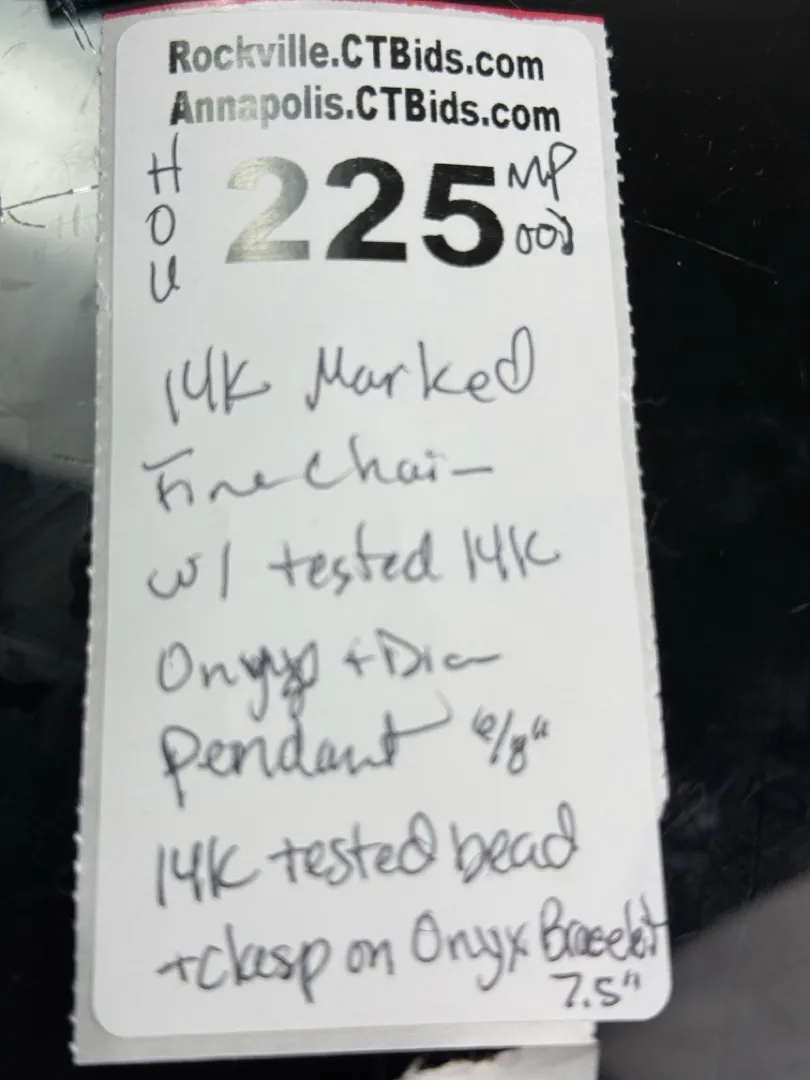 Rockville.CTBids.com
Annapolis.CTBids.com
HOU
225
MP
14K Marked
Fine Chain
w/ tested 14K
Onyx + Dia
Pendant 6/8"
14K tested bead
+clasp on Onyx Bracelet
7.5"